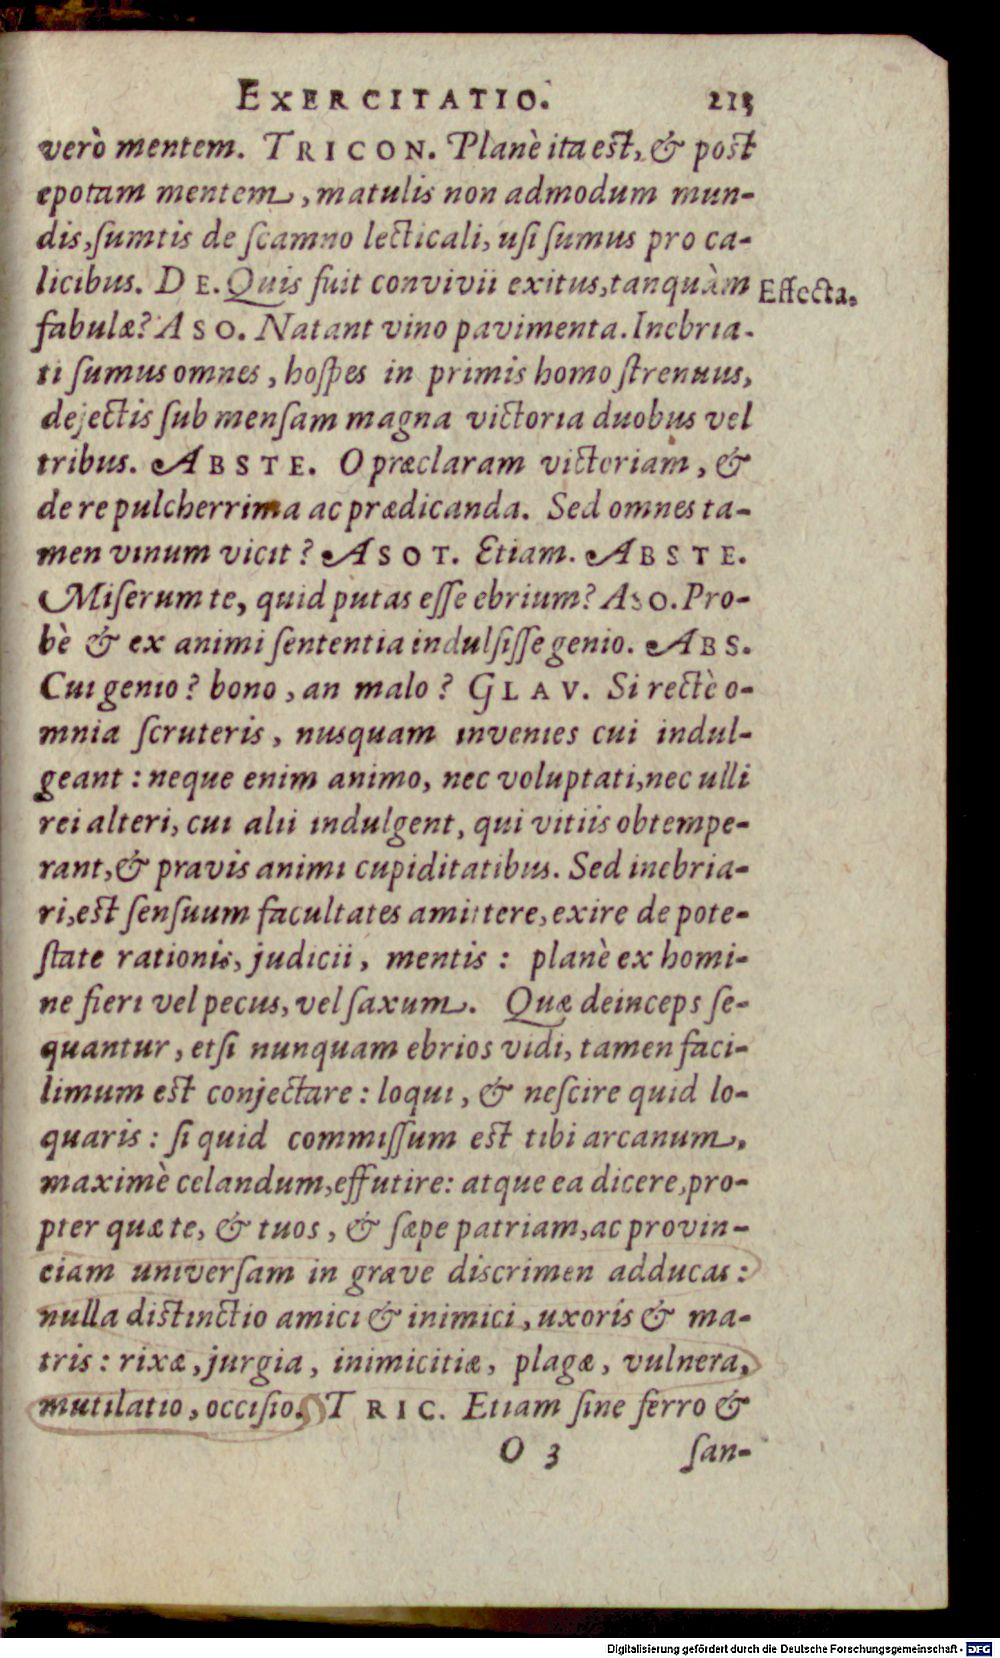 EXERCITATIO. 213
verò mentem. TRICON. Planè ita est, & post
epotam mentem, matulis non admodum mun-
dis, ſumtis de ſcamno lecticali, uſi ſumus pro ca-
licibus. DE. Quis fuit convivii exitus, tanquàm
Effecta.
fabulæ? ASO. Natant vino pavimenta. Inebria-
ti ſumus omnes, hoſpes in primis homo ſtrenuus,
dejectis ſub menſam magna victoria duobus vel
tribus. ABSTE. O præclaram victoriam, &
de re pulcherrima ac prædicanda. Sed omnes ta-
men vinum vicit? ASOT. Etiam. ABSTE.
Miſerum te, quid putas eſſe ebrium? ASO. Pro-
bè & ex animi ſententia indulſiſſe genio. ABS.
Cui genio? bono, an malo? GLAV. Si rectè o-
mnia ſcruteris, nusquam invenies cui indul-
geant: neque enim animo, nec voluptati, nec ulli
rei alteri, cui alii indulgent, qui vitiis obtempe-
rant, & pravis animi cupiditatibus. Sed inebria-
ri, est ſenſuum facultates amittere, exire de pote-
ſtate rationis, judicii, mentis: planè ex homi-
ne fieri vel pecus, vel ſaxum. Quæ deinceps ſe-
quantur, etſi nunquam ebrios vidi, tamen faci-
limum est conjectare: loqui, & neſcire quid lo-
quaris: ſi quid commiſſum est tibi arcanum,
maximè celandum, effutire: atque ea dicere, pro-
pter quæ te, & tuos, & ſæpe patriam, ac provin-
ciam univerſam in grave discrimen adducas:
nulla distinctio amici & inimici, uxoris & ma-
tris: rixæ, jurgia, inimicitiæ, plagæ, vulnera,
mutilatio, occiſio. TRIC. Etiam ſine ferro &
O 3 ſan-
Digitalisierung gefördert durch die Deutsche Forschungsgemeinschaft - DFG